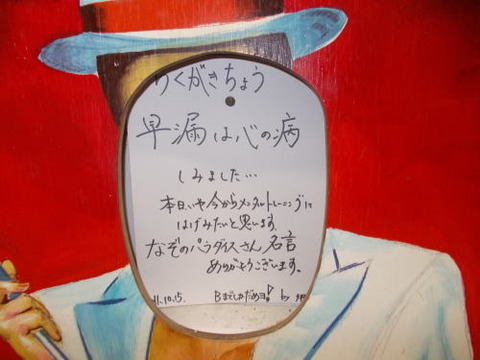 らくがきちょう
早漏は心の病
しみました…
本日、いや今からメンタルトレーニングに
はげみたいと思います。
なぞのパラダイスさん 名言
ありがとうございます。
11.10.15. Bまでしかだめヨ! by